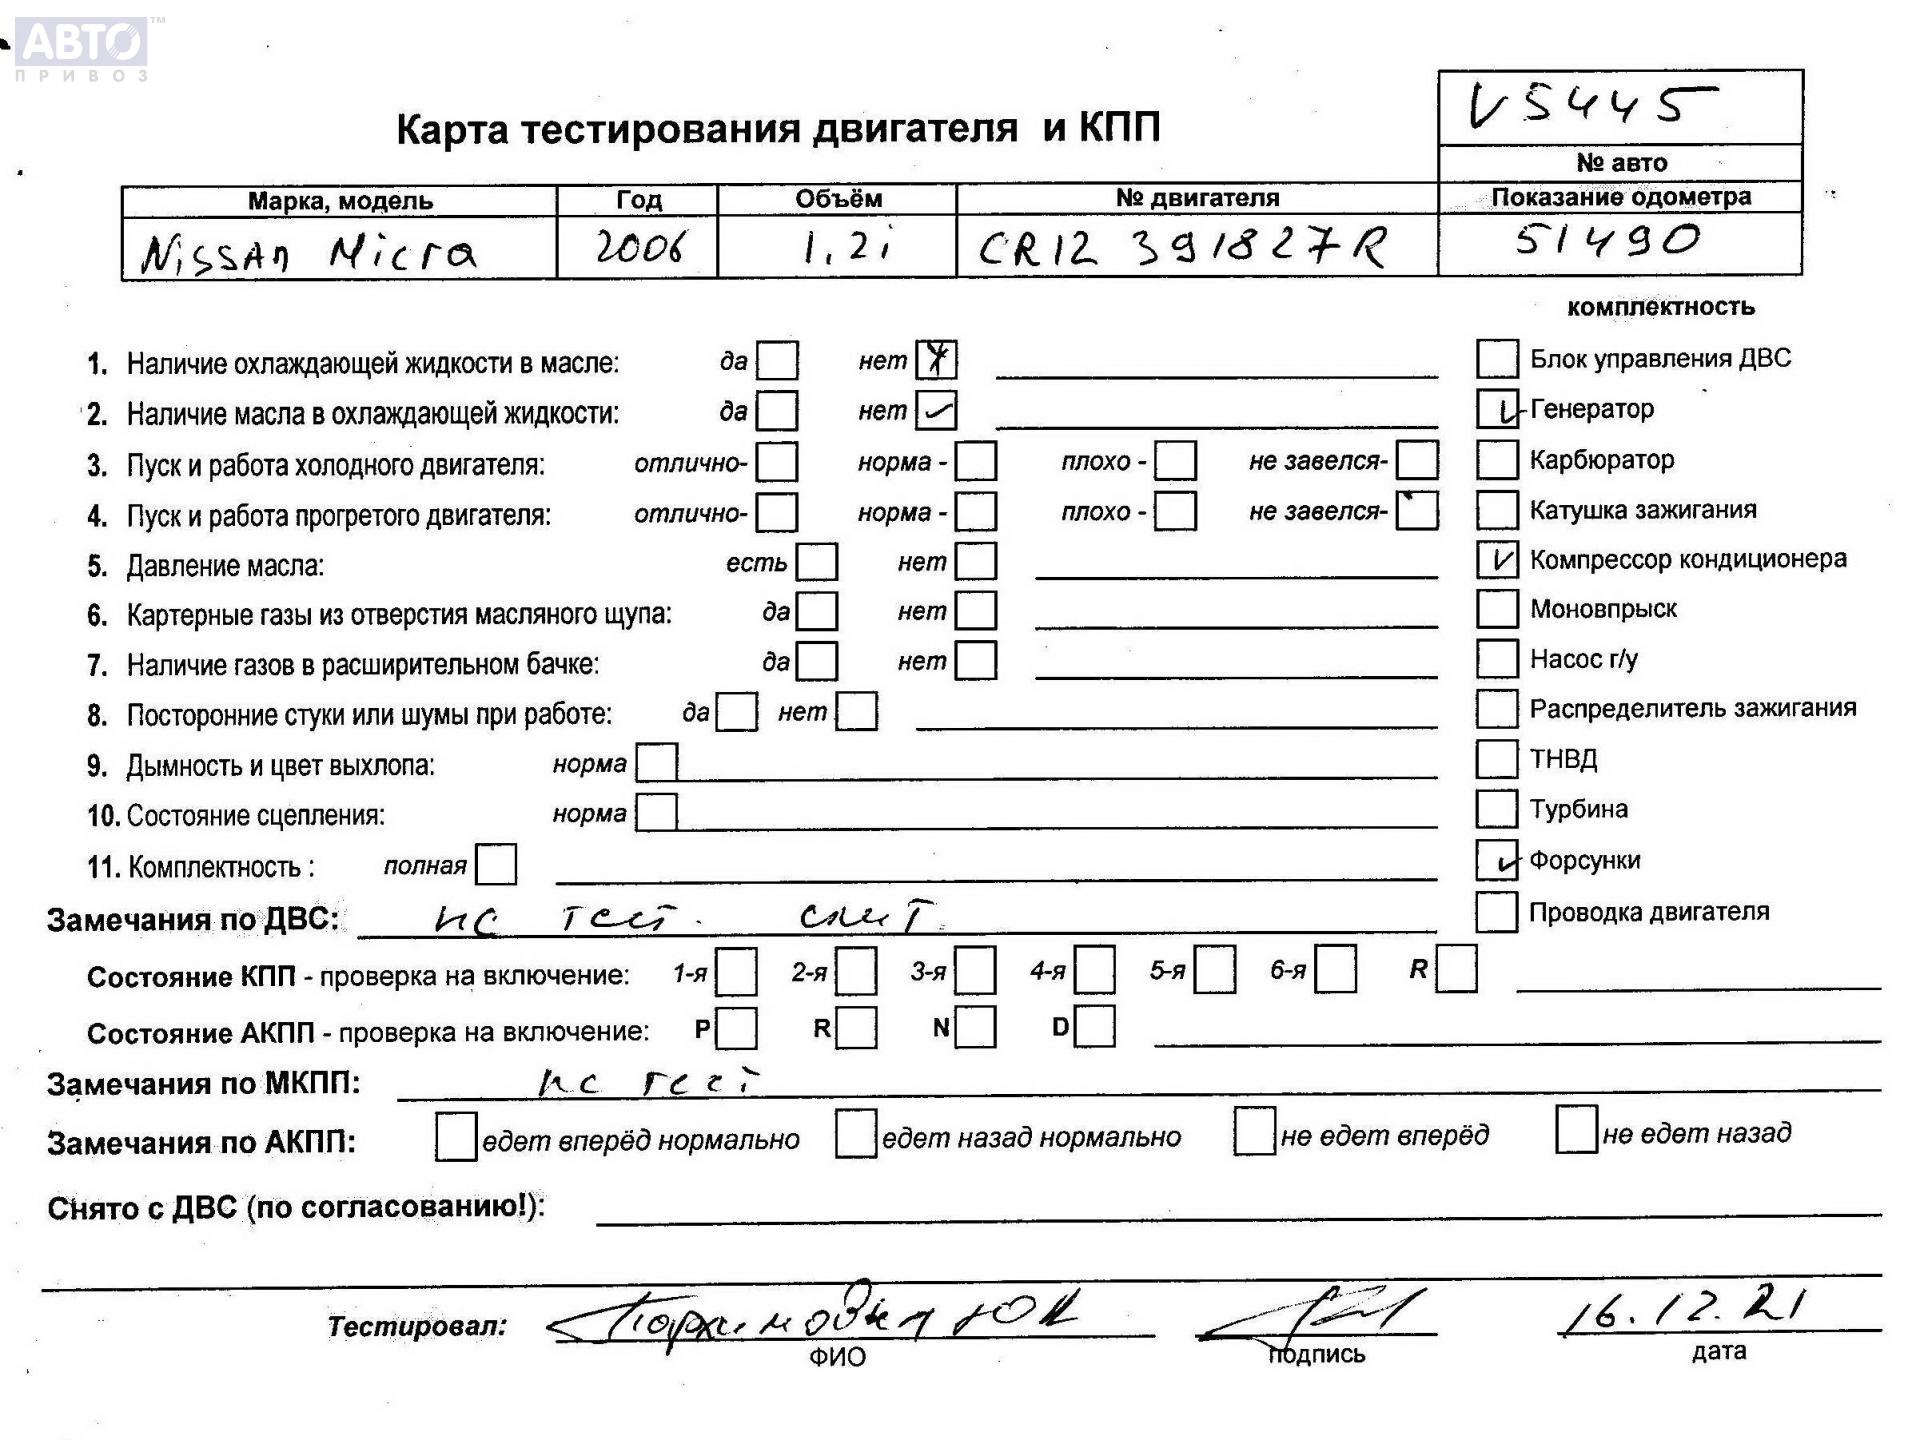 АВТО™
ПРИВОЗ
V5445
Карта тестирования двигателя и КПП
№ авто
Марка, модель Год Объём № двигателя Показание одометра
Nissan Micra 2006 1.2i CR12 391827R 51490
комплектность
1. Наличие охлаждающей жидкости в масле: да нет Блок управления ДВС
2. Наличие масла в охлаждающей жидкости: да нет Генератор
3. Пуск и работа холодного двигателя: отлично- норма - плохо - не завелся- Карбюратор
4. Пуск и работа прогретого двигателя: отлично- норма - плохо - не завелся- Катушка зажигания
5. Давление масла: есть нет Компрессор кондиционера
6. Картерные газы из отверстия масляного щупа: да нет Моновпрыск
7. Наличие газов в расширительном бачке: да нет Насос г/у
8. Посторонние стуки или шумы при работе: да нет Распределитель зажигания
9. Дымность и цвет выхлопа: норма ТНВД
10. Состояние сцепления: норма Турбина
11. Комплектность : полная Форсунки
Замечания по ДВС: нс тест. Проводка двигателя
Состояние КПП - проверка на включение: 1-я 2-я 3-я 4-я 5-я 6-я R
Состояние АКПП - проверка на включение: P R N D
Замечания по МКПП: нс тест
Замечания по АКПП: едет вперёд нормально едет назад нормально не едет вперёд не едет назад
Снято с ДВС (по согласованию!):
Тестировал: 16.12.21
ФИО подпись дата